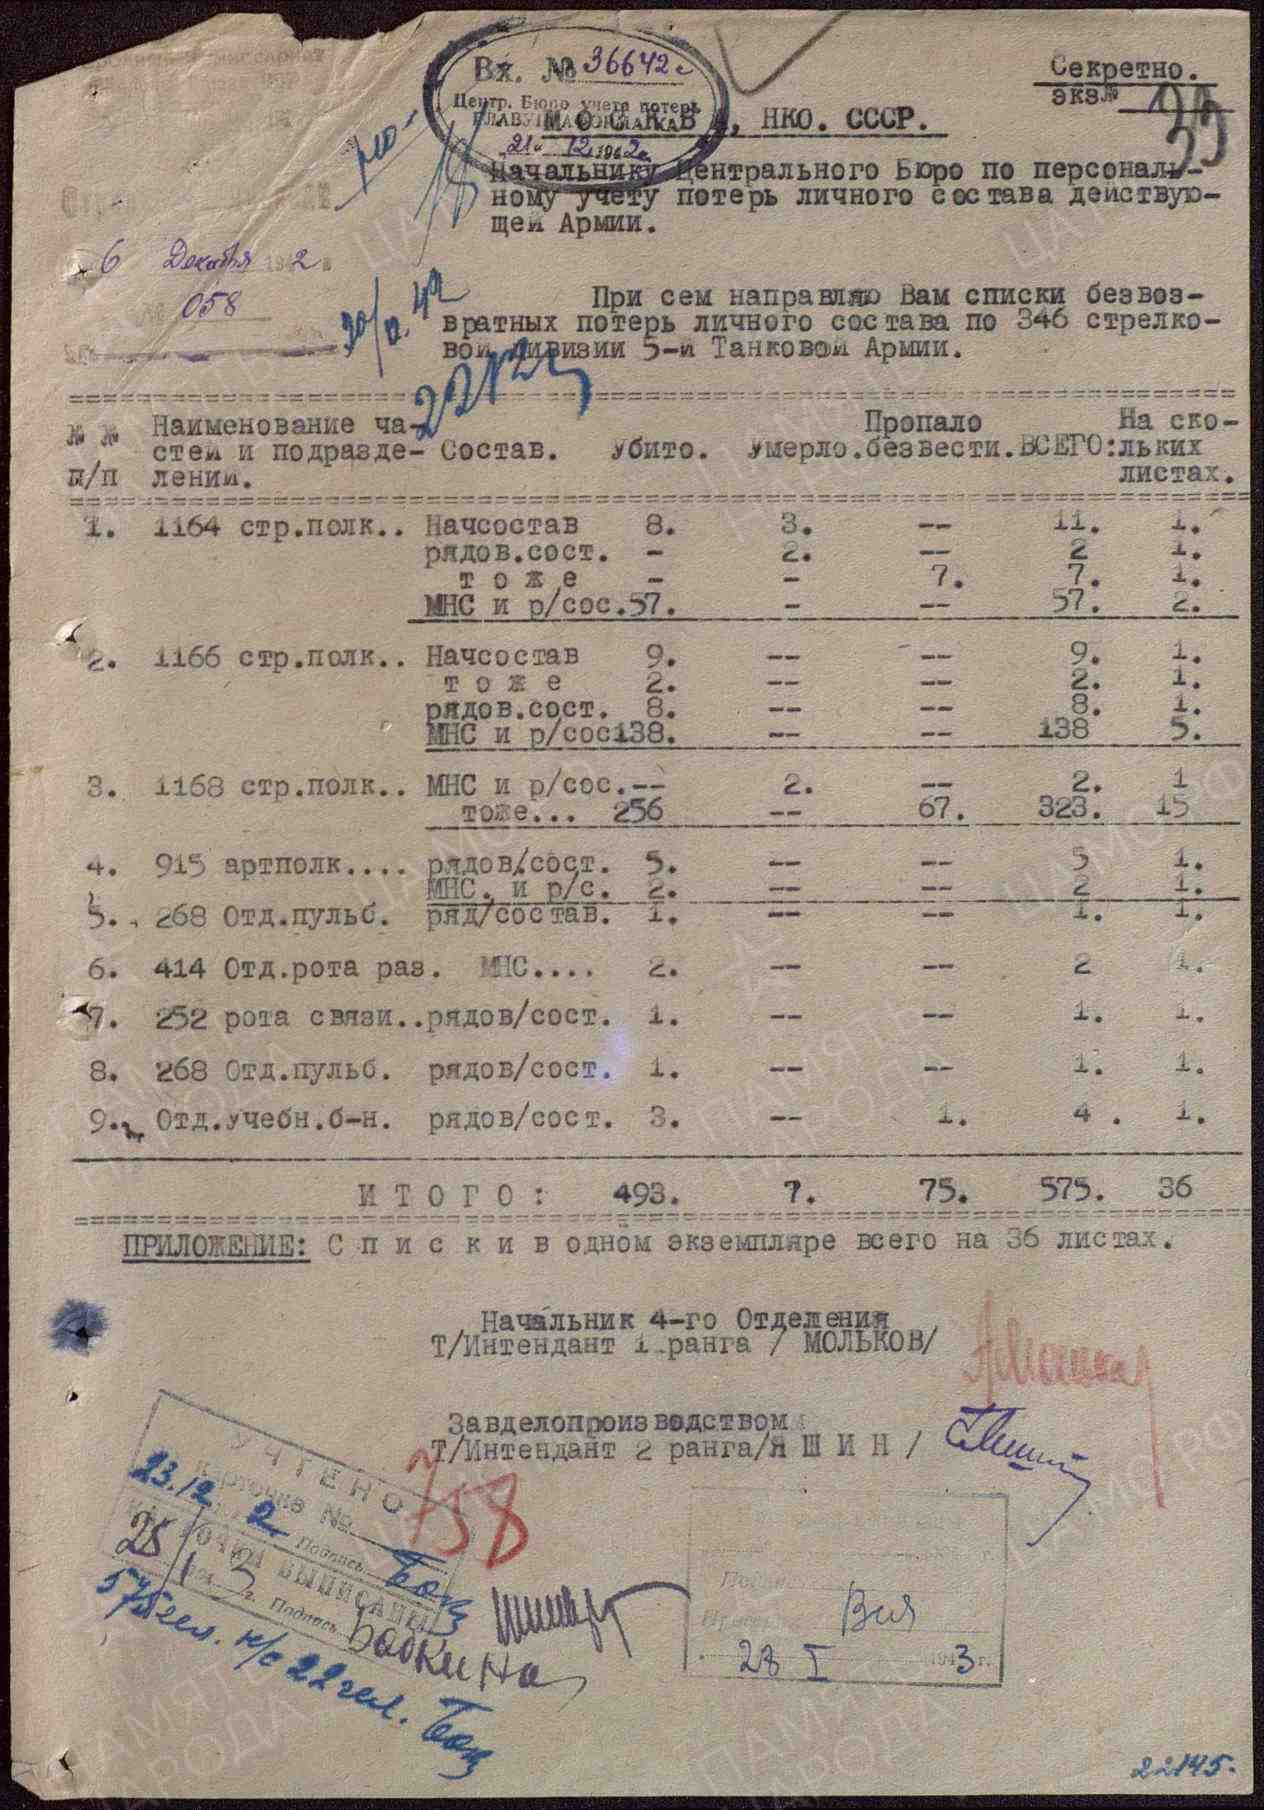 Вх. № 36642с
Центр. Бюро учета потерь
21 12 1942г.
Секретно.
экз№
МОСКВА, НКО. СССР.
Начальнику Центрального Бюро по персональ-
ному учету потерь личного состава действую-
щей Армии.
6 Декабря 1942
058
При сем направляю Вам списки безвоз-
вратных потерь личного состава по 346 стрелко-
вой дивизии 5-й Танковой Армии.
№ № п/п Наименование ча-стей и подразде-лений. Состав. Убито. Умерло. Пропало безвести. ВСЕГО: На ско-льких листах.
1. 1164 стр.полк.. Начсостав 8. 3. -- 11. 1.
рядов.сост. - 2. -- 2 1.
т о ж е - - 7. 7. 1.
МНС и р/сос.57. - -- 57. 2.
2. 1166 стр.полк.. Начсостав 9. -- -- 9. 1.
т о ж е 2. -- -- 2. 1.
рядов.сост. 8. -- -- 8. 1.
МНС и р/сос138. -- -- 138 5.
3. 1168 стр.полк.. МНС и р/сос.-- 2. -- 2. 1
тоже... 256 -- 67. 323. 15
4. 915 артполк.... рядов/сост. 5. -- -- 5 1.
МНС. и р/с. 2. -- -- 2 1.
5. 268 Отд.пульб. ряд/состав. 1. -- -- 1. 1.
6. 414 Отд.рота раз. МНС.... 2. -- -- 2 1.
7. 252 рота связи..рядов/сост. 1. -- -- 1. 1.
8. 268 Отд.пульб. рядов/сост. 1. -- -- 1. 1.
9. Отд.учебн.б-н. рядов/сост. 3. -- 1. 4 . 1.
И Т О Г О : 493. 7. 75. 575. 36
ПРИЛОЖЕНИЕ: С п и с к и в одном экземпляре всего на 36 листах.
Начальник 4-го Отделения
Т/Интендант 1 ранга / МОЛЬКОВ/
Завделопроизводством
Т/Интендант 2 ранга/Я Ш И Н /
758
УЧТЕНО
Карточка №
23.12. 2 Подпись
КАРТОЧКИ ВЫПИСАНЫ
25/1 3 г. Подпись Бабкина
575 чел. н/с 22 чел.
28 I 1943 г.
22145.